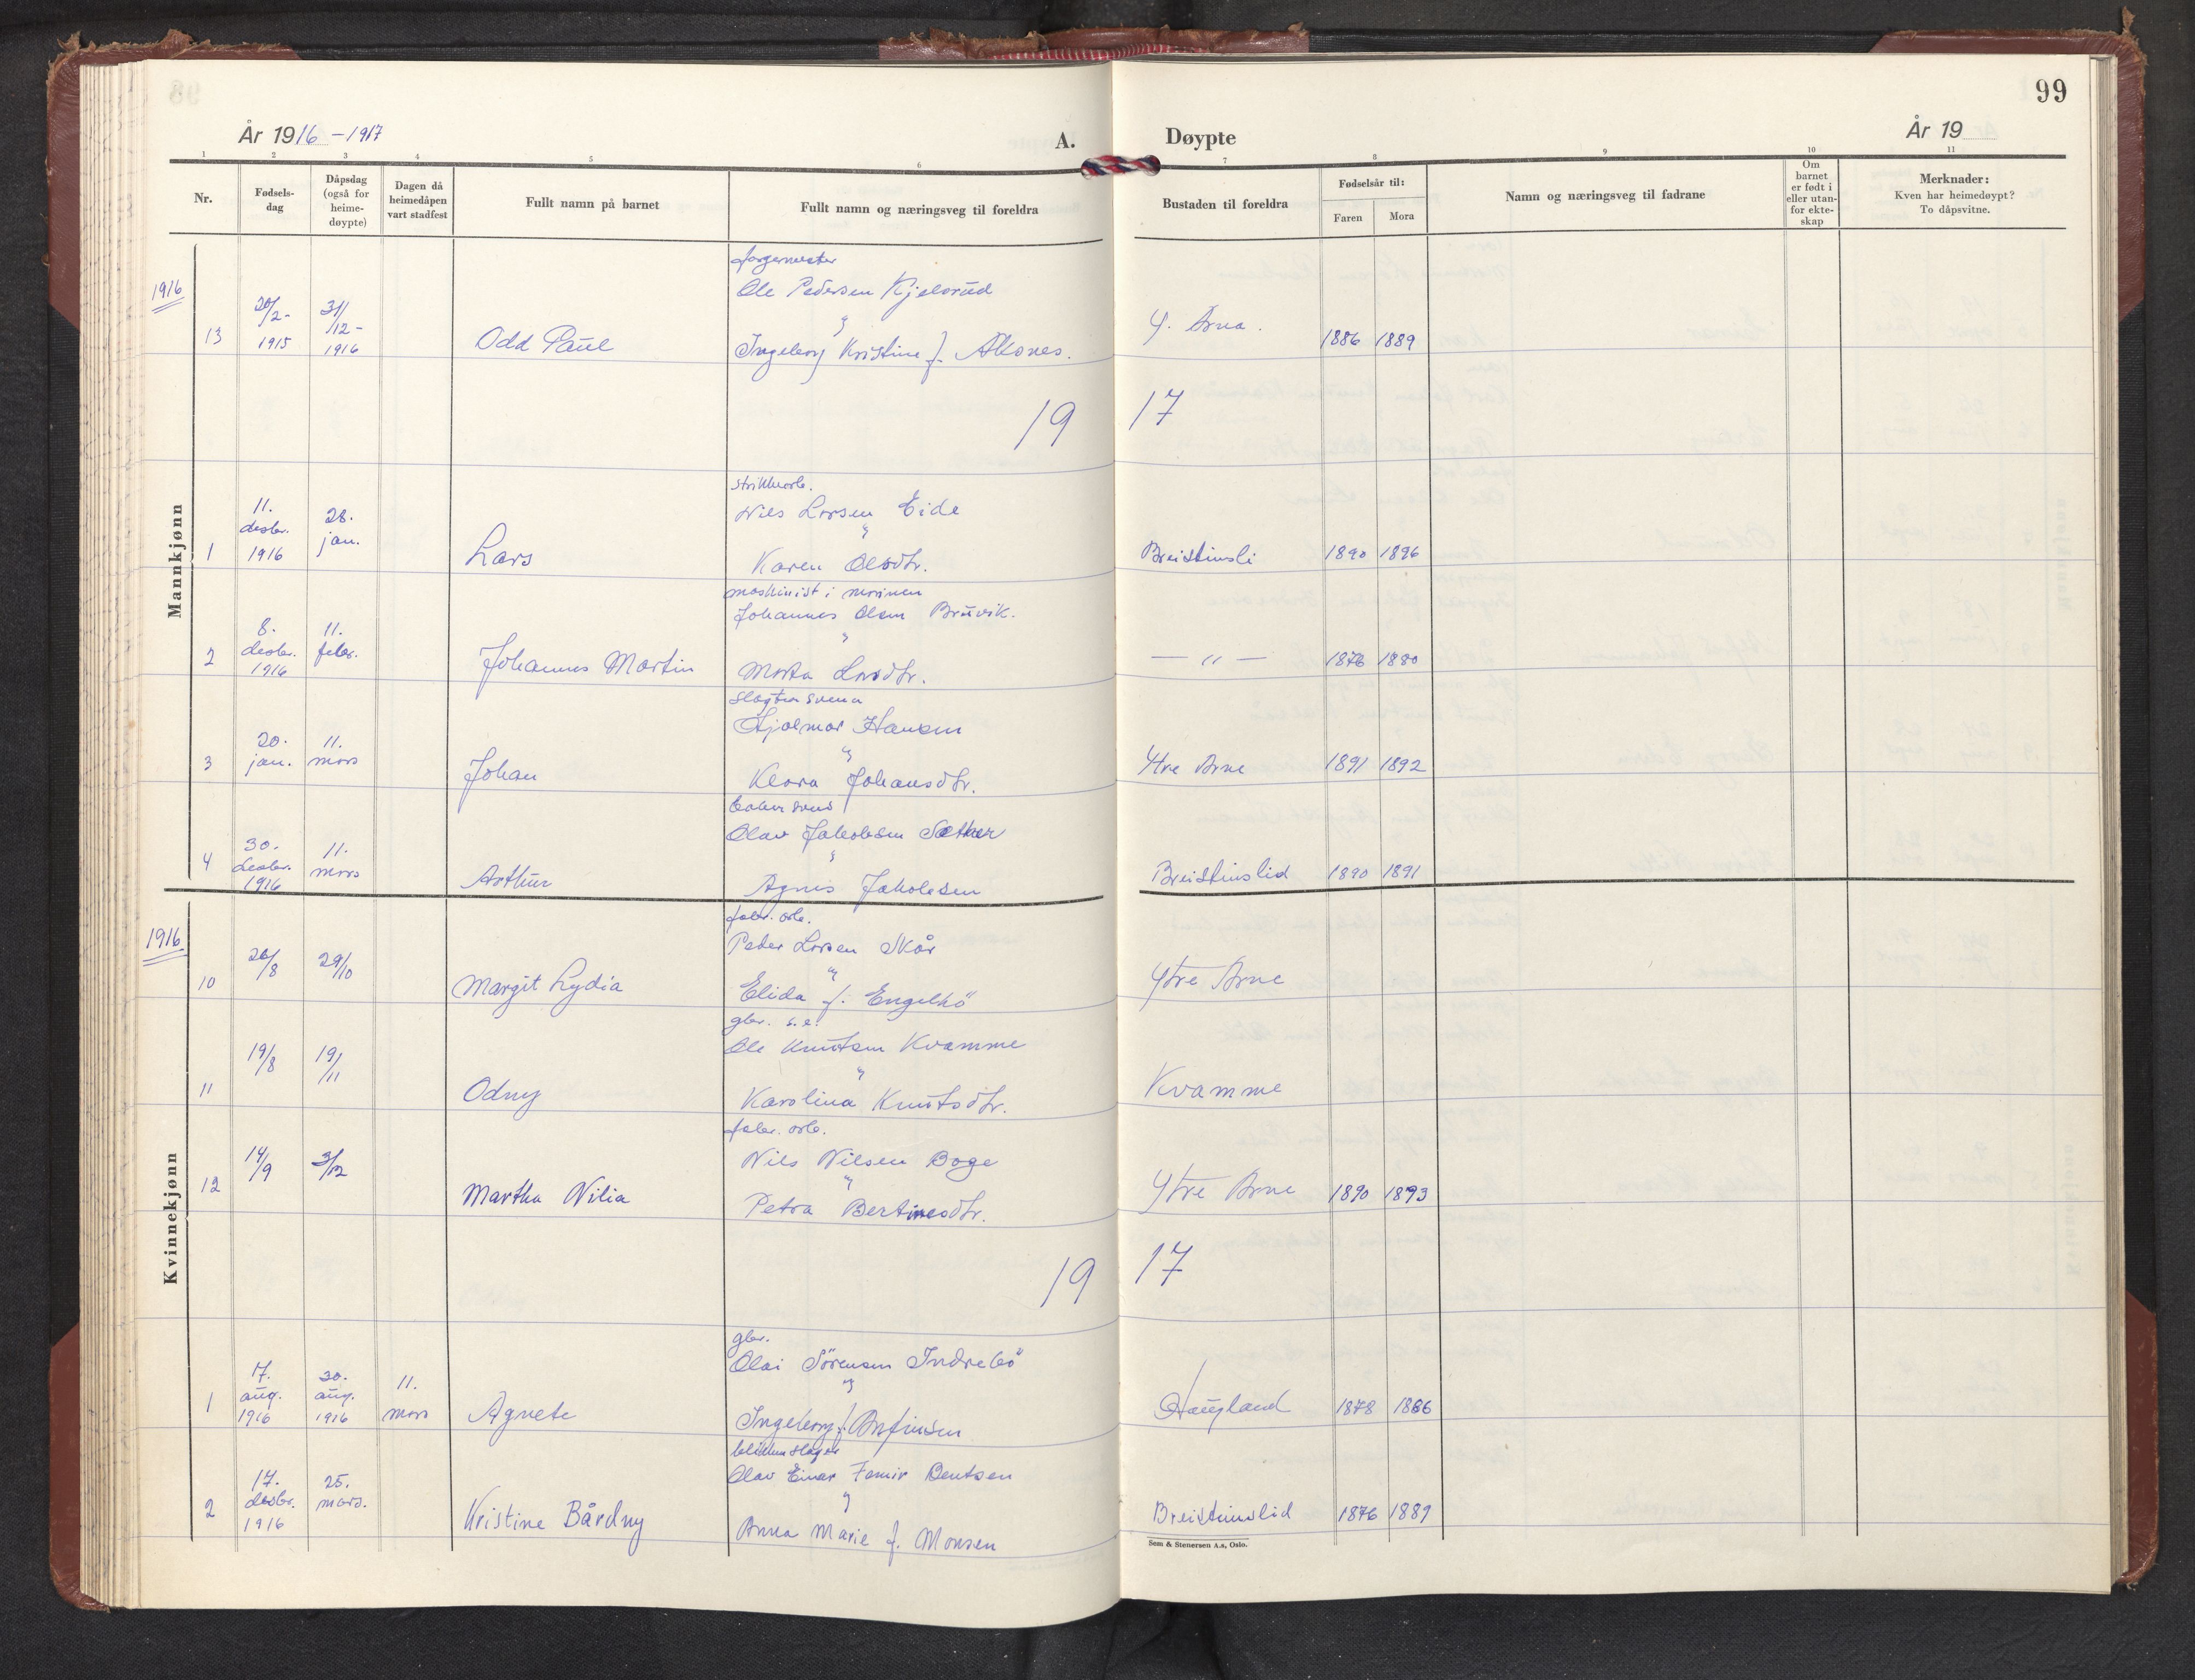 99
År 1916 - 1917
A.
Døypte
År 19
1 2 3 4 5 6 7 8 9 10 11
Nr.
Fødsels-
dag
Dåpsdag
(også for
heime-
døypte)
Dagen då
heimedåpen
vart stadfest
Fullt namn på barnet
Fullt namn og næringsveg til foreldra
Bustaden til foreldra
Fødselsår til:
Faren Mora
Namn og næringsveg til fadrane
Om
barnet
er født i
eller utan-
for ekte-
skap
Merknader:
Kven har heimedøypt?
To dåpsvitne.
Mannkjønn
1916
fargemester
Ole Pedersen Kjelsrud
13 20/2- 1915 31/12- 1916 Odd Paul
Ingeborg Kristine f. Alsnes. Y. Arna. 1886 1889
19 17
strikkarb.
Nils Larsen Eide
1 11. desbr. 1916 28. jan. Lars
Karen Olsdtr. Breistinsli 1890 1896
maskinist i marinen
Johannes Olsen Bruvik.
2 8. desbr. 1916 11. febr. Johannes Martin
Marta Larsdtr. — " — 1876 1880
slagtersvenn
Hjalmar Hansen
3 20. jan. 11. mars Johan
Klara Johansdtr. Ytre Arne 1891 1892
bakersvend
Olav Jakobsen Sæther
4 30. desbr. 1916 11. mars Arthur
Agnes Jakobsen Breistinslid 1890 1891
Kvinnekjønn
1916
fabr. arb.
Peder Larsen Skår
10 26/8 29/10 Margit Lydia
Elida f. Engelbö Ytre Arne
gbr. s.e.
Ole Knutsen Kvamme
11 19/8 19/11 Odny
Karolina Knutsdtr. Kvamme
fabr. arb.
Nils Nilsen Boge
12 14/9 3/12 Martha Nilia
Petra Bertinesdtr. Ytre Arne 1890 1893
19 17
gbr.
Olai Sörensen Indrebö
1 17. aug. 1916 30. aug. 1916 11. mars Agnete
Ingeborg f. Anfinsen Haugland 1878 1886
blikkenslager
Olav Einar Bentsen
2 17. desbr. 1916 25. mars. Kristine Bårdny
Anna Marie f. Monsen Breistinslid 1876 1889
Sem & Stenersen A.s, Oslo.